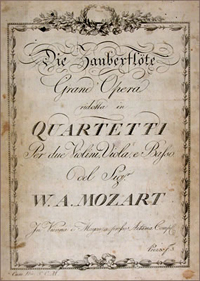 Die Zauberflöte
Grand Opera
ridotta in
QUARTETTI
Per due Violini, Viola, e Basso
del Sigr
W. A. MOZART
In Vienna e Magonza presso Artaria Comp.